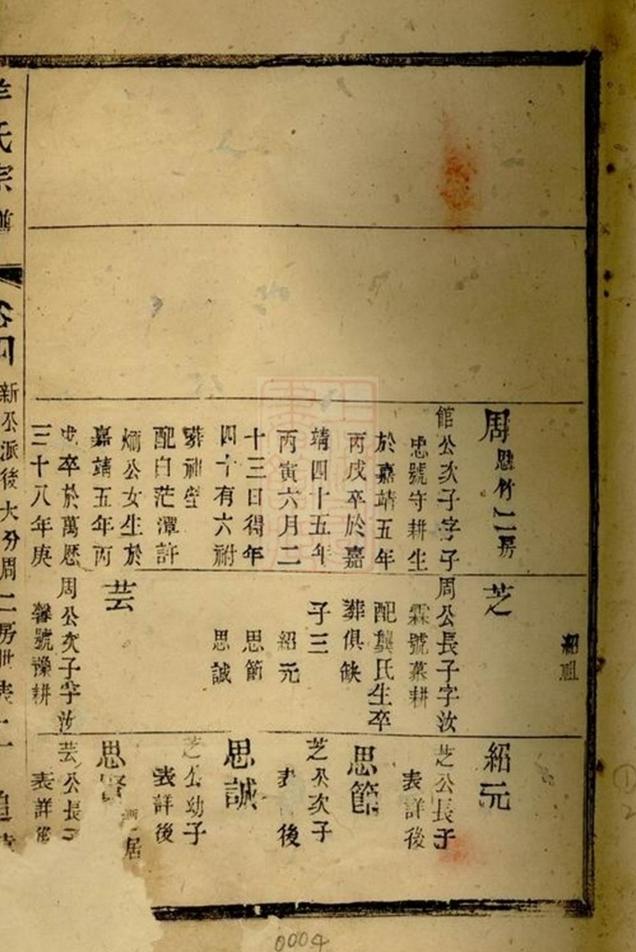 紹祖
周
思竹二房
館公次子字子
忠號守耕生
於嘉靖五年
丙戌卒於嘉
靖四十五年
丙寅六月二
十三日得年
四十有六祔
葬祖塋
配白茫潭許
炳公女生於
嘉靖五年丙
戌卒於萬歷
三十八年庚
芝
周公長子字汝
霖號菜耕
配龔氏生卒
葬俱缺
子三
紹元
思節
思誠
芸
周公次子字汝
馨號豫耕
紹元
芝公長子
表詳後
思節
芝公次子
表 後
思誠
芝公幼子
表詳後
思賢
居
芸公長
表詳
羊氏宗譜
卷四
新公派後大分周二房世表
0004